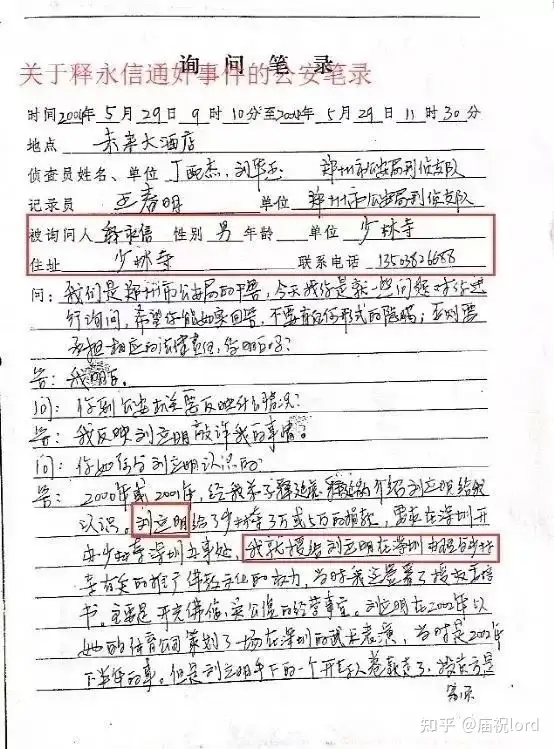 询问笔录
关于释永信通奸事件的公安笔录
时间2004年5月29日9时10分至2004年5月29日11时30分
地点 未来大酒店
侦查员姓名、单位 丁 刘华 郑州市公安局刑侦支队
记录员 王春明 单位 郑州市公安局刑侦支队
被询问人 释永信 性别 男 年龄 单位 少林寺
住址 少林寺 联系电话
问:我们是郑州市公安局的干警,今天我们就一些问题对你进
行询问,希望你能如实回答,不要有任何形式的隐瞒;否则要
承担相应的法律责任,你明白吗?
答:我明白。
问:你到公安机关要反映什么情况?
答:我反映刘立明敲诈我的事情。
问:你如何与刘立明认识的
答:2000年或2001年,经我弟子释延 介绍刘立明给我
认识。刘立明给了少林寺3万或5万的捐款,要求在深圳开
办少林寺深圳办事处。我就授给刘立明在深圳办理与少林
寺有关的推广佛教文化的权力,当时我还签署了授权委托
书。主要是开光佛像,卖 的经营事宜。刘立明在2002年以
她的体育公司策划了一场在深圳的武术表演,当时是2002年
下半年的事。但是刘立明手下的一个 人卷款走了,投资方是
知乎 @庙祝lord